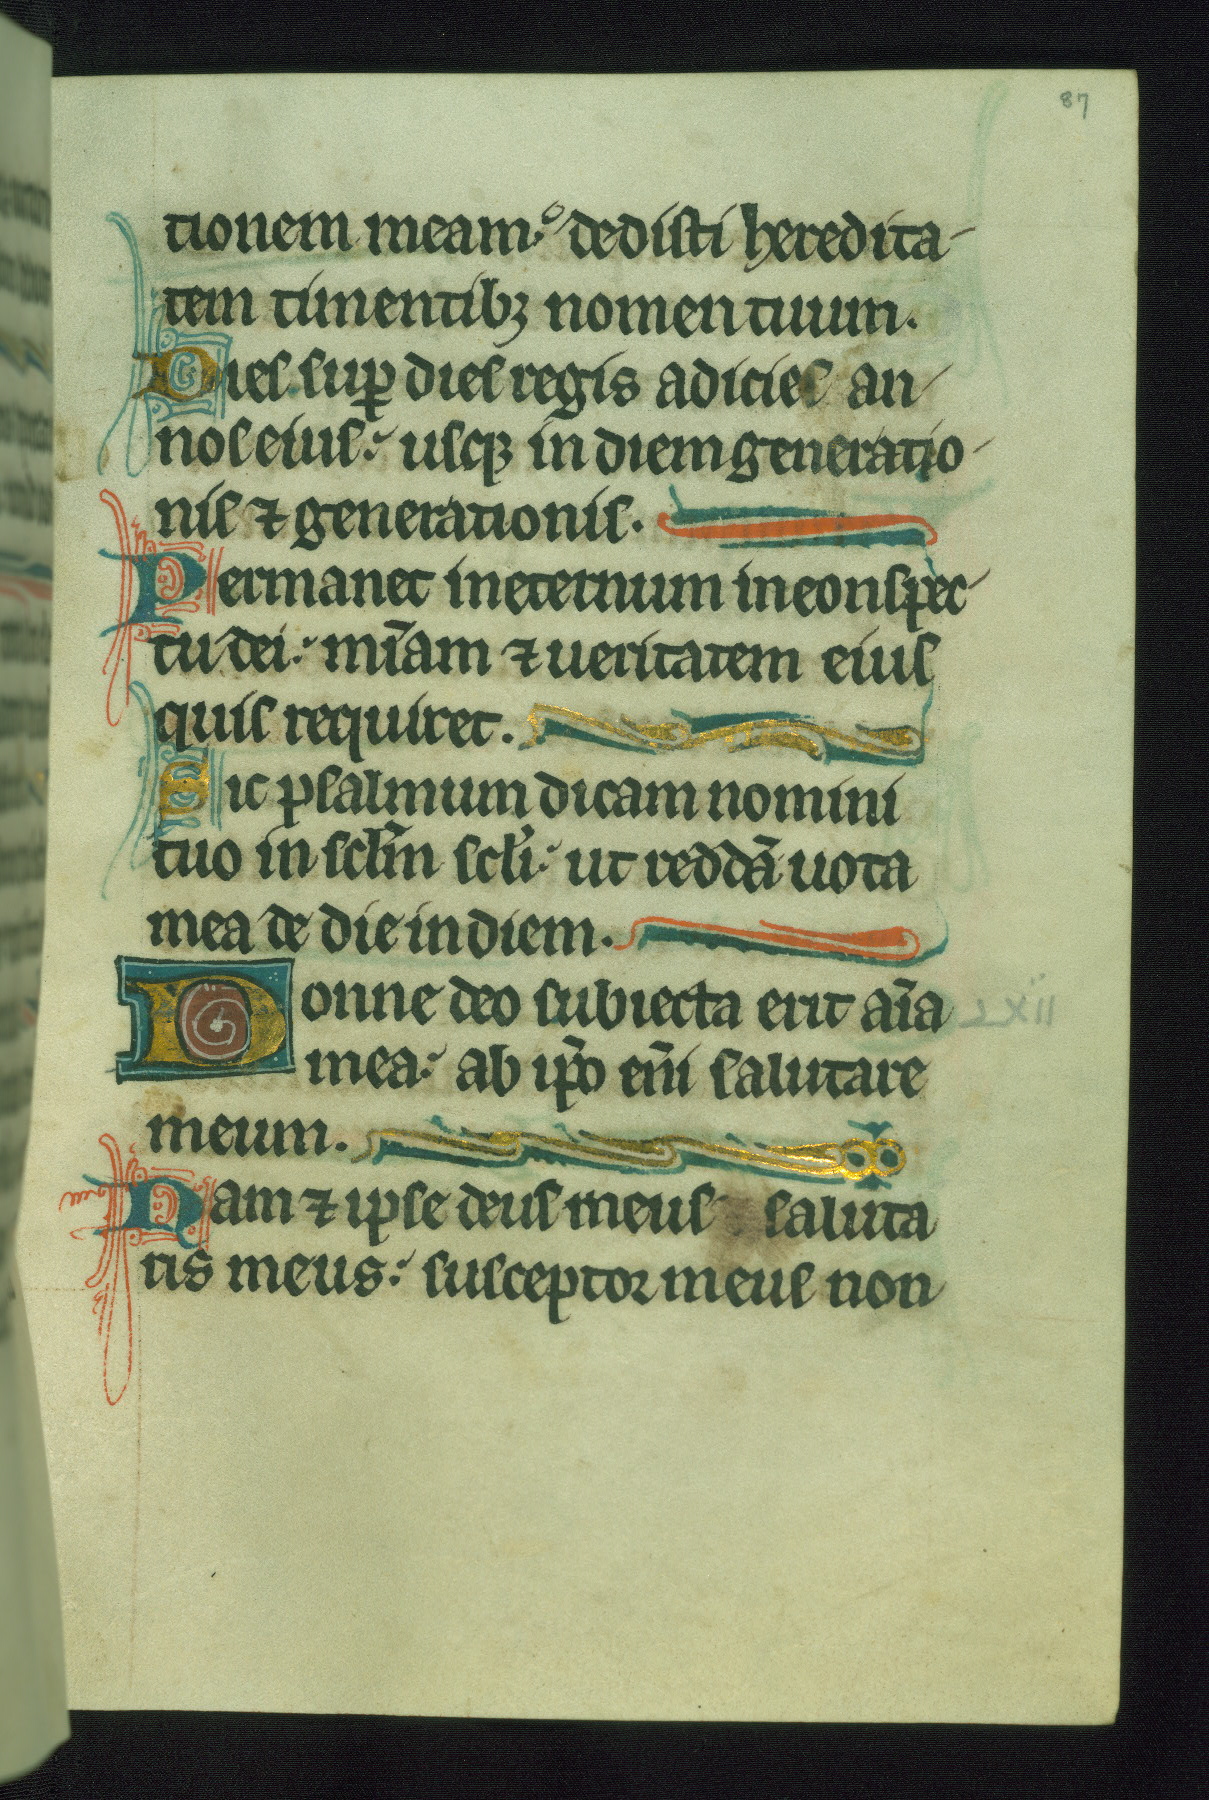 87
tionem meam: dedisti heredita-
tem timentibꝫ nomen tuum.
Dies suꝑ dies regis adicies an-
nos eius: usqꝫ in diem generatio-
nis ⁊ generationis.
Permanet in eternum in conspec-
tu dei: mīam ⁊ ueritatem eius
quis requiret.
Sic psalmum dicam nomini
tuo in sclm̄ scli: ut reddā uota
mea de die in diem.
Nonne deo subiecta erit aīa
mea: ab ip̄o em̄i salutare
meum.
Nam ⁊ ipse deus meus saluta
tis meus: susceptor meus non